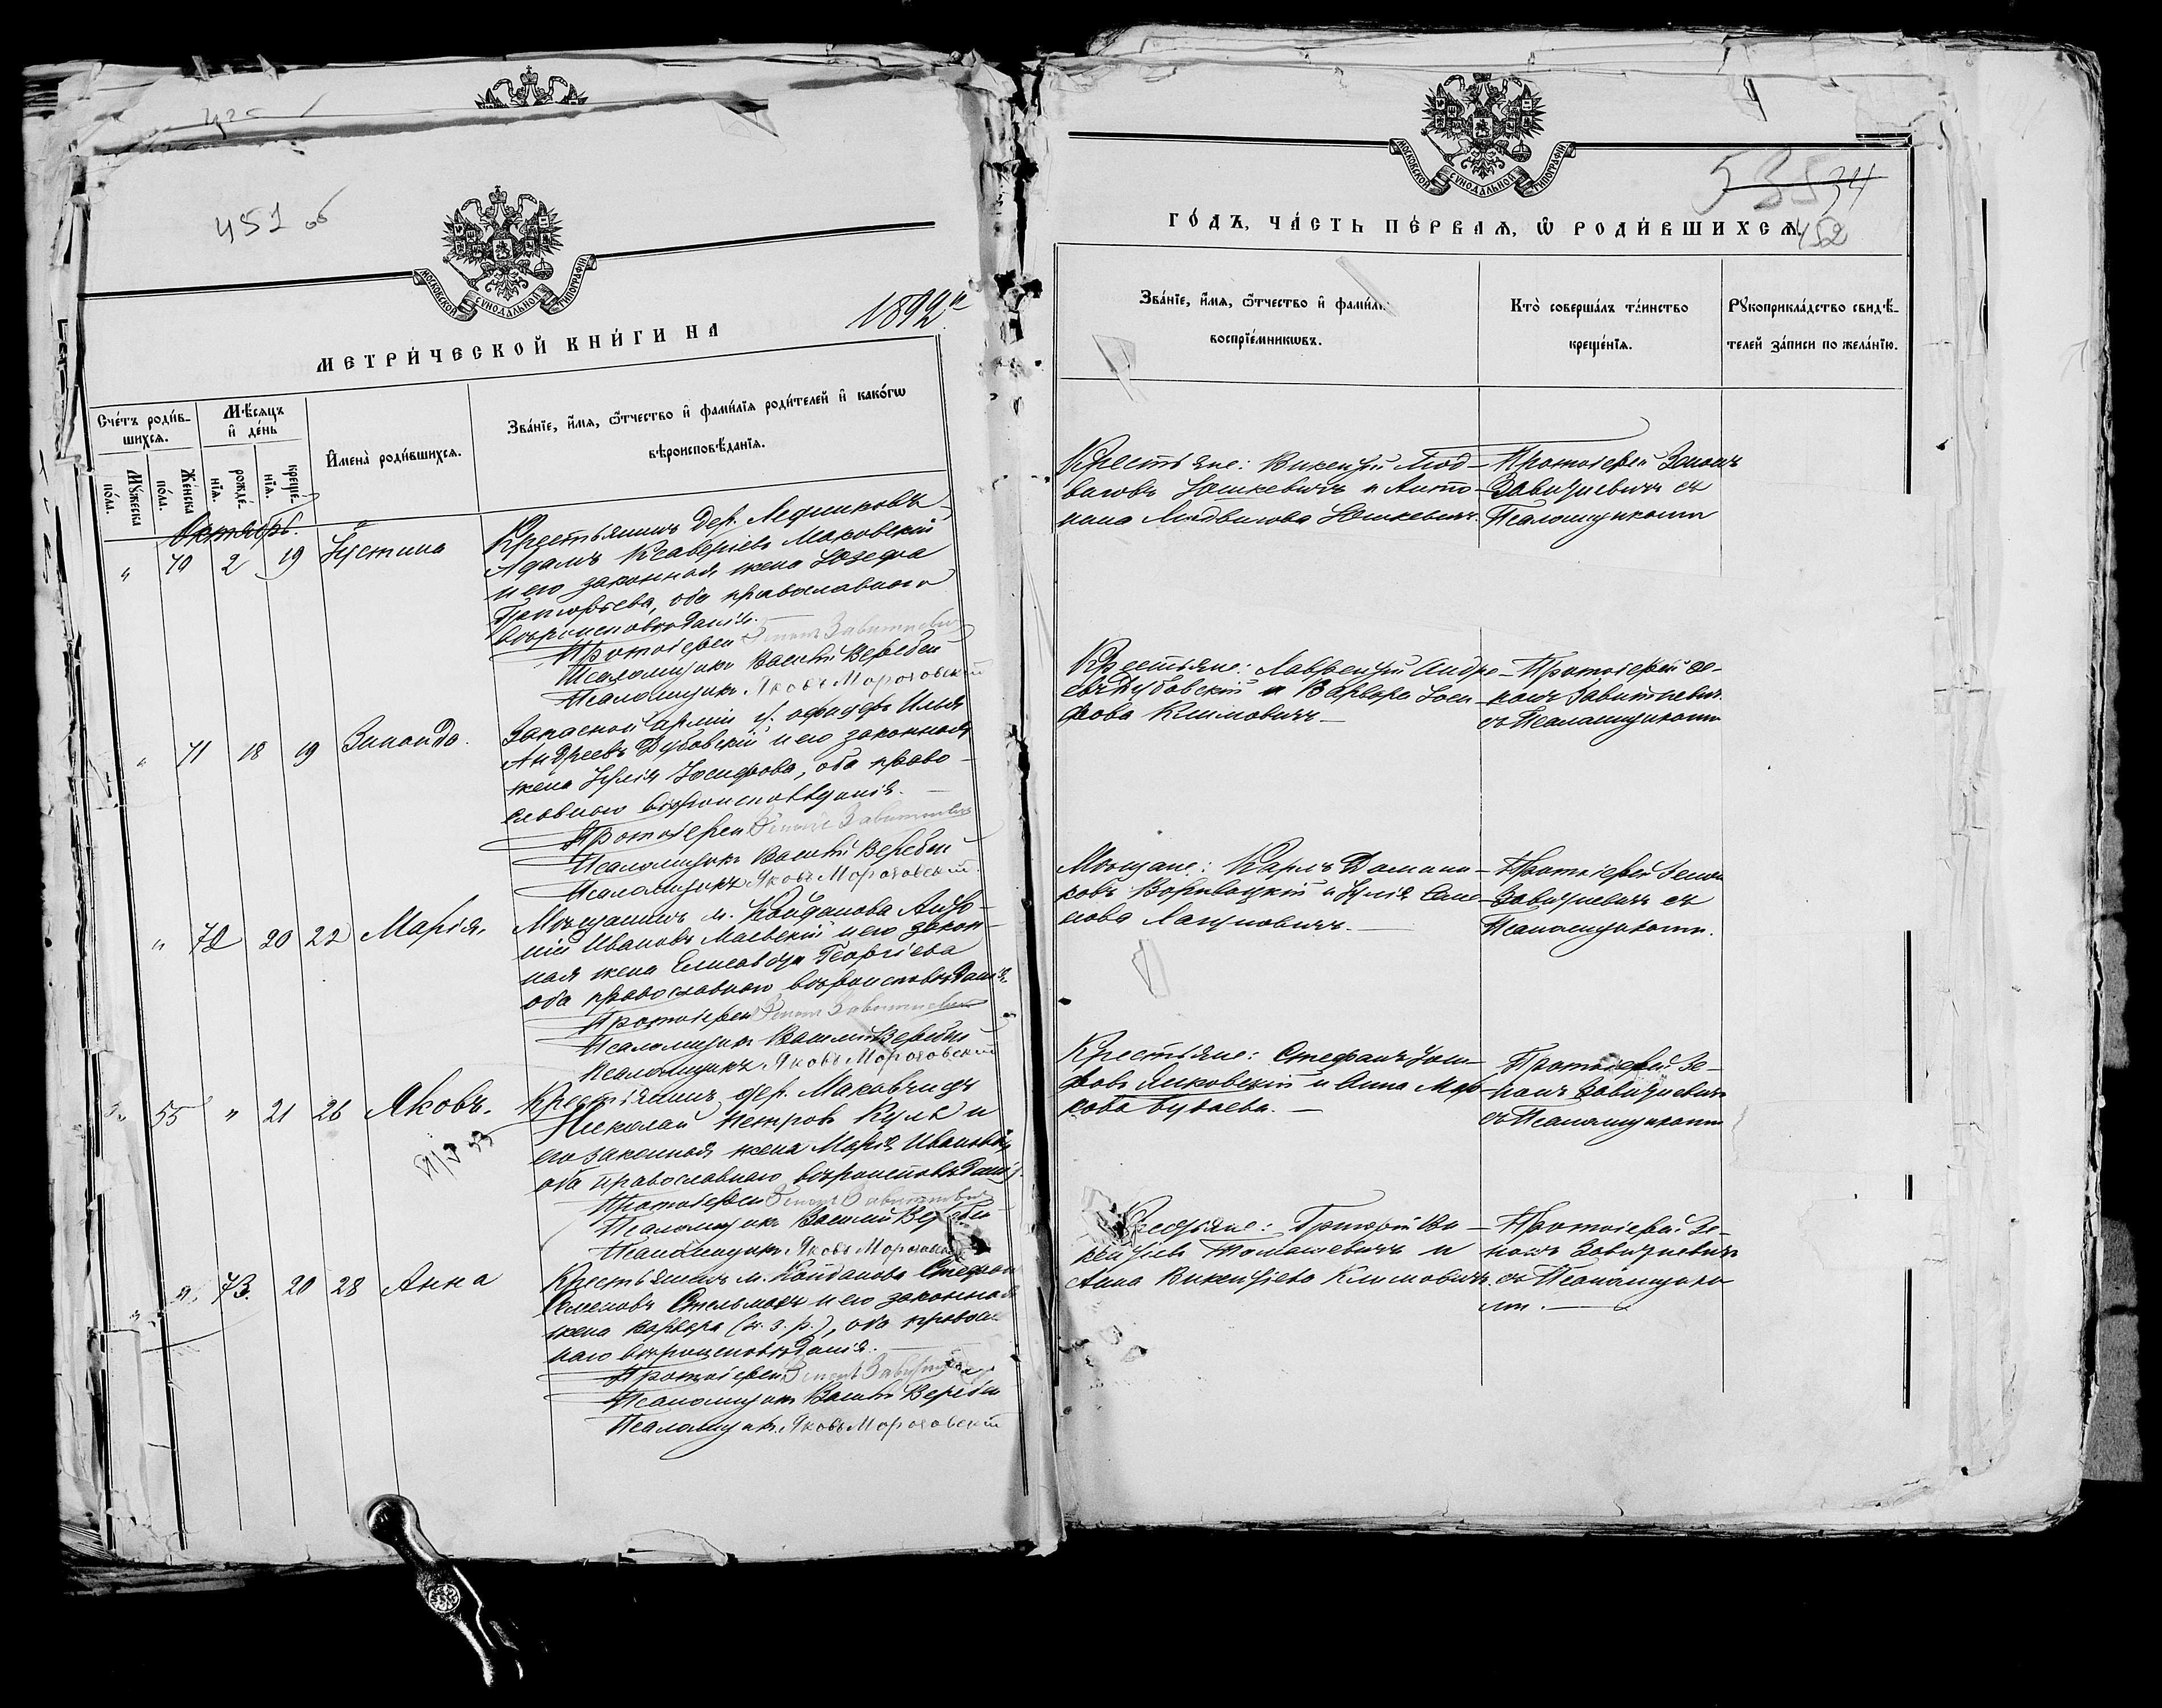 451 об
МОСКОВСКОЙ СѴНОДАЛЬНОЙ ТИПОГРАФІИ
МЕТРИ́ЧЕСКОЙ КНИ́ГИ НА
1892 г.
Сче́тъ роди́в-
шихсѧ.
Мꙋ́жеска
по́ла.
Же́нска
по́ла.
Мѣ́сѧцъ
и҆ де́нь
рожде́-
нїѧ.
креще́-
нїѧ.
И҆мена̀ роди́вшихсѧ.
Зва́нїе, и҆́мѧ, ѻ҆́тчество и҆ фами́лїѧ роди́телей и҆ како́гѡ
вѣроисповѣ́данїѧ.
Октябрь.
" 70 2 19 Іустина
Крестьянинъ дер.
Адамъ Ксаверіевъ Маковскій
и его законная жена Юзефа
Григорьева, оба православнаго
вѣроисповѣданія.
Протоіерей Зенонъ Завитневичъ
Псаломщикъ Василій Веребей
Псаломщикъ Яковъ Мороховскій
" 71 18 19 Зинаида.
Запасной арміи Илья
Андреевъ Дубовскій и его законная
жена Іулія Іосифова, оба право-
славнаго вѣроисповѣданія.
Протоіерей Зенонъ Завитневичъ
Псаломщикъ Василій Веребей
Псаломщикъ Яковъ Мороховскій.
" 72 20 22 Марія.
Мѣщанинъ м. Койданова Анто-
ній Ивановъ Маевскій и его закон-
ная жена Елисавета Георгіева
оба православнаго вѣроисповѣданія.
Протоіерей Зенонъ Завитневичъ
Псаломщикъ Василій Веребей
Псаломщикъ Яковъ Мороховскій
55 " 21 26 Яковъ.
Крестьянинъ дер. Маковчицъ
Николай Петровъ Куль и
его законная жена Марія Иванова,
оба православнаго вѣроисповѣданія.
Протоіерей Зенонъ Завитневичъ
Псаломщикъ Василій Веребей
Псаломщикъ Яковъ Мороховскій
" 73. 20 28 Анна
Крестьянинъ м. Койданова Стефанъ
Семеновъ Стельмахъ и его законная
жена Варвара (н. з. р.), оба православ
наго вѣроисповѣданія.
Протоіерей Зенонъ Завитневичъ
Псаломщикъ Василій Веребей
Псаломщикъ Яковъ Мороховскій
МОСКОВСКОЙ СѴНОДАЛЬНОЙ ТИПОГРАФІИ
452
ГО́ДЪ, ЧА́СТЬ ПЕ́РВАѦ, Ѡ҆ РОДИ́ВШИХСѦ.
Зва́нїе, и҆́мѧ, ѻ҆́тчество и҆ фами́лї
воспрїе́мникѡвъ.
Кто̀ соверша́лъ та́инство
креще́нїѧ.
Рꙋкоприкла́дство свидѣ́-
телей за́писи по жела́нїю.
Крестьяне: Викентій Люд-
виговъ Юшкевичъ и Анто-
нина Людвигова Юшкевичъ.
Протоіерей Зенонъ
Завитневичъ съ
Псаломщиками
Крестьяне: Лаврентій Андре-
евъ Дубовскій и Варвара Іоси-
фова Климовичъ
Протоіерей Зе-
нонъ Завитневичъ
съ Псаломщиками
Мѣщане: Карлъ Домини-
ковъ и Іулія Семе-
нова
Протоіерей Зенонъ
Завитневичъ съ
Псаломщиками.
Крестьяне: Стефанъ Іоси-
фовъ Янковскій и Анна Мар-
кова
Протоіерей Зе-
нонъ Завитневичъ
съ Псаломщиками
Крестьяне: Григорій Ви-
кентіевъ Томашевичъ и
Анна Викентіева Климовичъ.
Протоіерей Зе-
нонъ Завитневичъ
съ Псаломщика
ми.